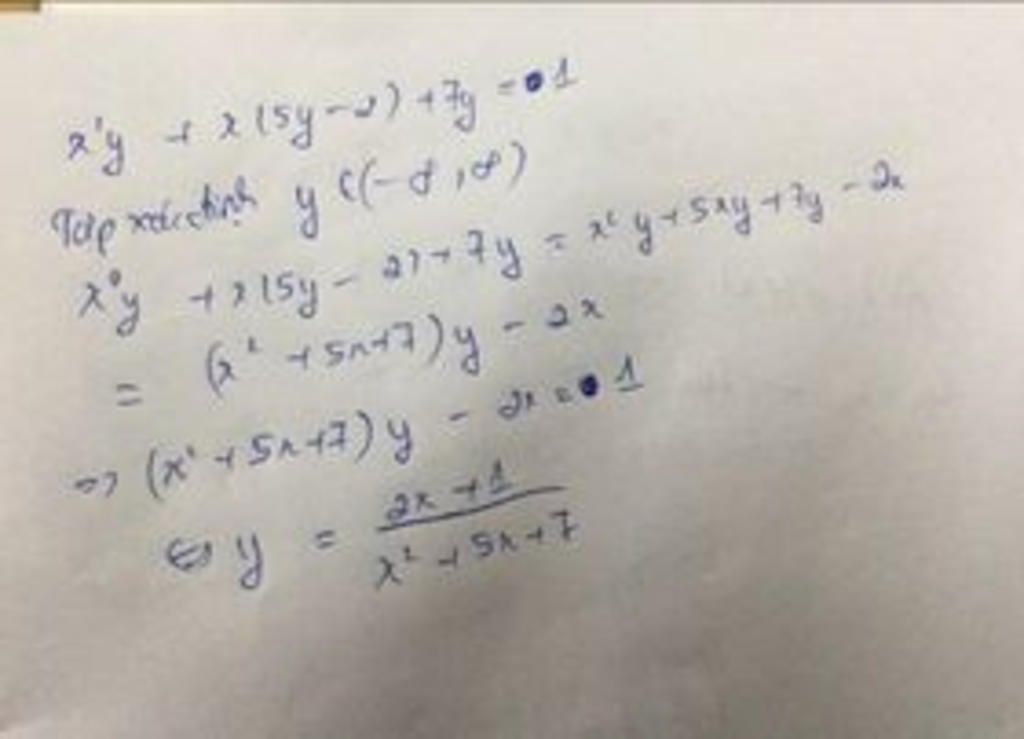 x²y + x(5y-2) + 7y = 1
Tập xác định y ∈ (-∞, ∞)
x²y + x(5y-2) + 7y = x²y + 5xy + 7y - 2x
= (x² + 5x + 7)y - 2x
=> (x² + 5x + 7)y - 2x = 1
<=> y = (2x + 1)/(x² + 5x + 7)